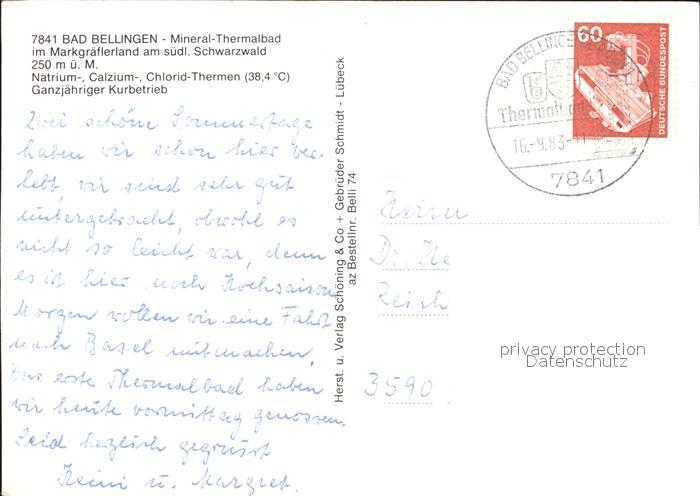 7841 BAD BELLINGEN - Mineral-Thermalbad
im Markgräflerland am südl. Schwarzwald
250 m ü. M.
Natrium-, Calzium-, Chlorid-Thermen (38,4 °C)
Ganzjähriger Kurbetrieb
Zwei schöne Sommertage
haben wir schon hier ver-
lebt, wir sind sehr gut
untergebracht, obwohl es
nicht so leicht war, denn
es ist hier noch Hochsaison.
Morgen wollen wir eine Fahrt
nach Basel mitmachen.
Das erste Thermalbad haben
wir heute vormittag genossen.
Seid herzlich gegrüsst
Heini u. Margret.
Herst. u. Verlag Schöning & Co + Gebrüder Schmidt - Lübeck
az Bestellnr. Belli 74
60
DEUTSCHE BUNDESPOST
BAD BELLINGEN
Thermal
16.-9.83-11
7841
Herrn
Dr. He
Reich
3590
privacy protection
Datenschutz